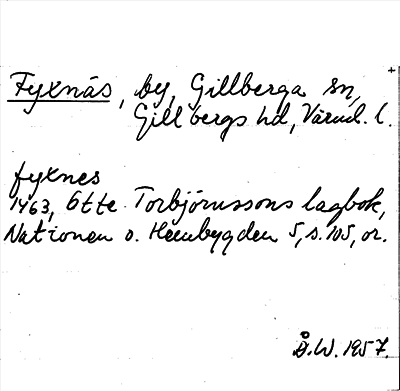 Fyxnäs, by, Gillberga sn,
Gillbergs hd, Värml. l.
fyxnes
1463, Otte Torbjörnssons lagbok,
Nationen o. Hembygden 5, s. 105, or.
Å.W. 1957.